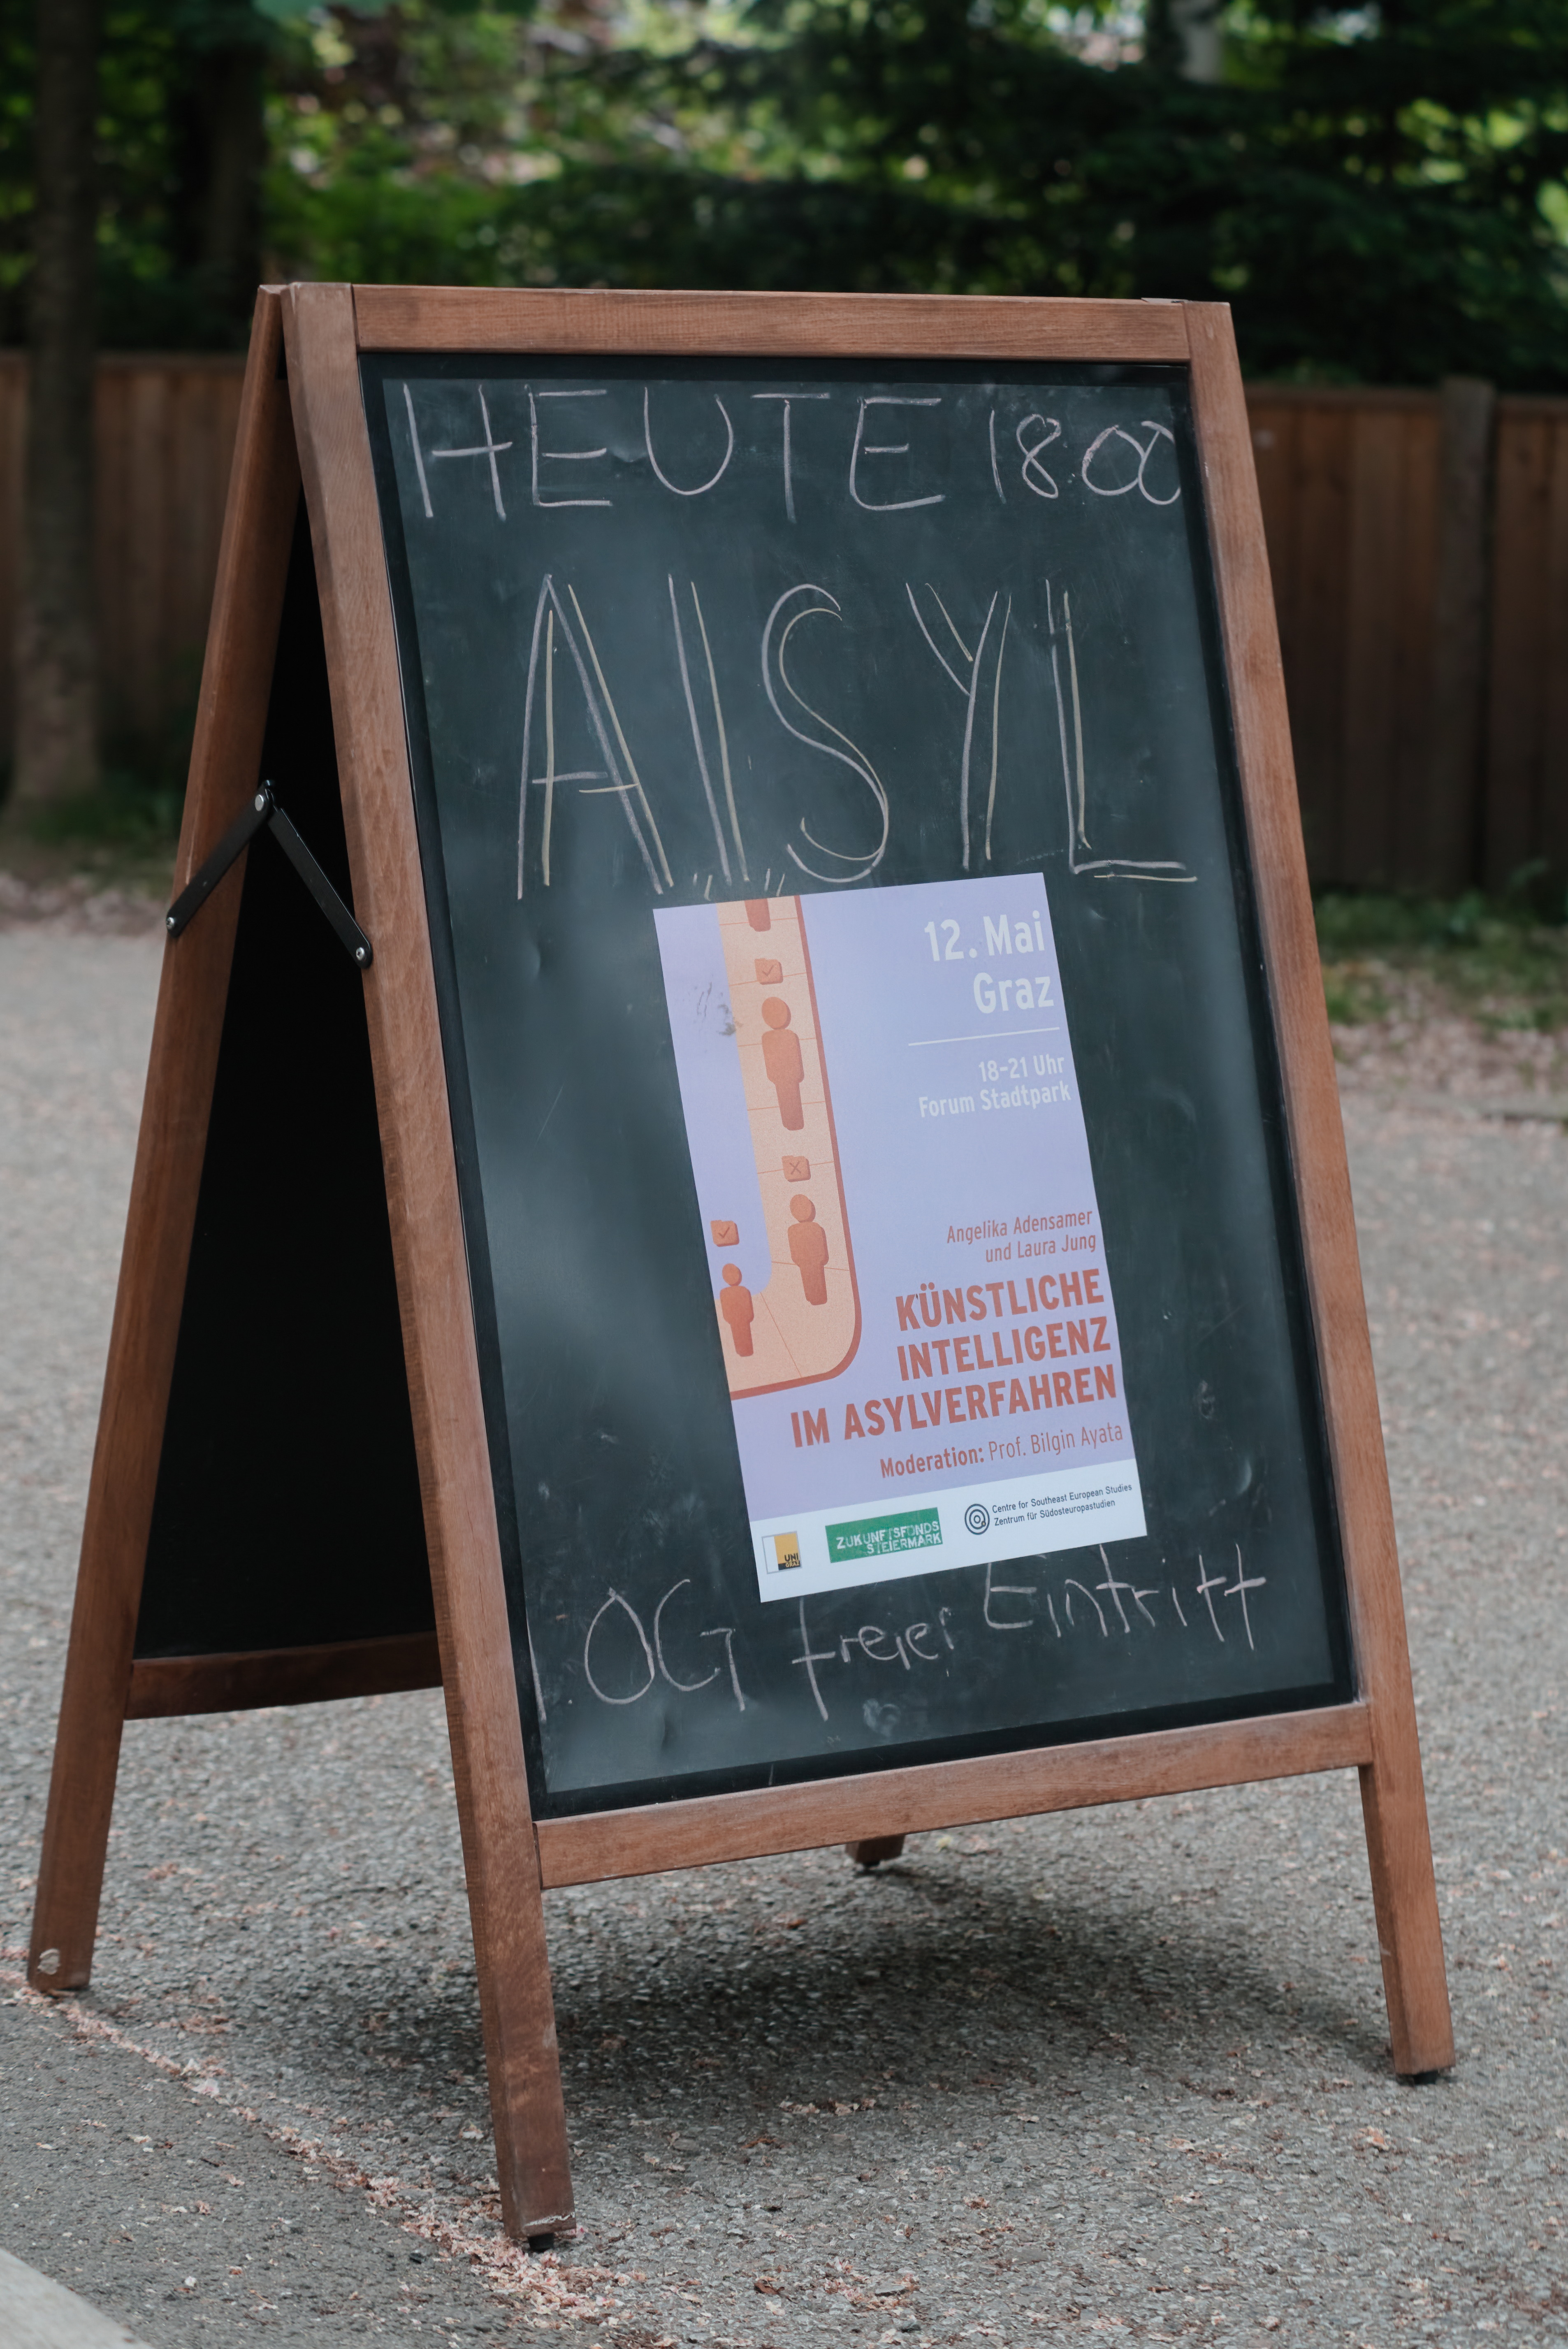 HEUTE 18:00
AISYL
12. Mai
Graz
18–21 Uhr
Forum Stadtpark
Angelika Adensamer
und Laura Jung
KÜNSTLICHE
INTELLIGENZ
IM ASYLVERFAHREN
Moderation: Prof. Bilgin Ayata
UNI
GRAZ
ZUKUNFTSFONDS
STEIERMARK
Centre for Southeast European Studies
Zentrum für Südosteuropastudien
1.OG freier Eintritt